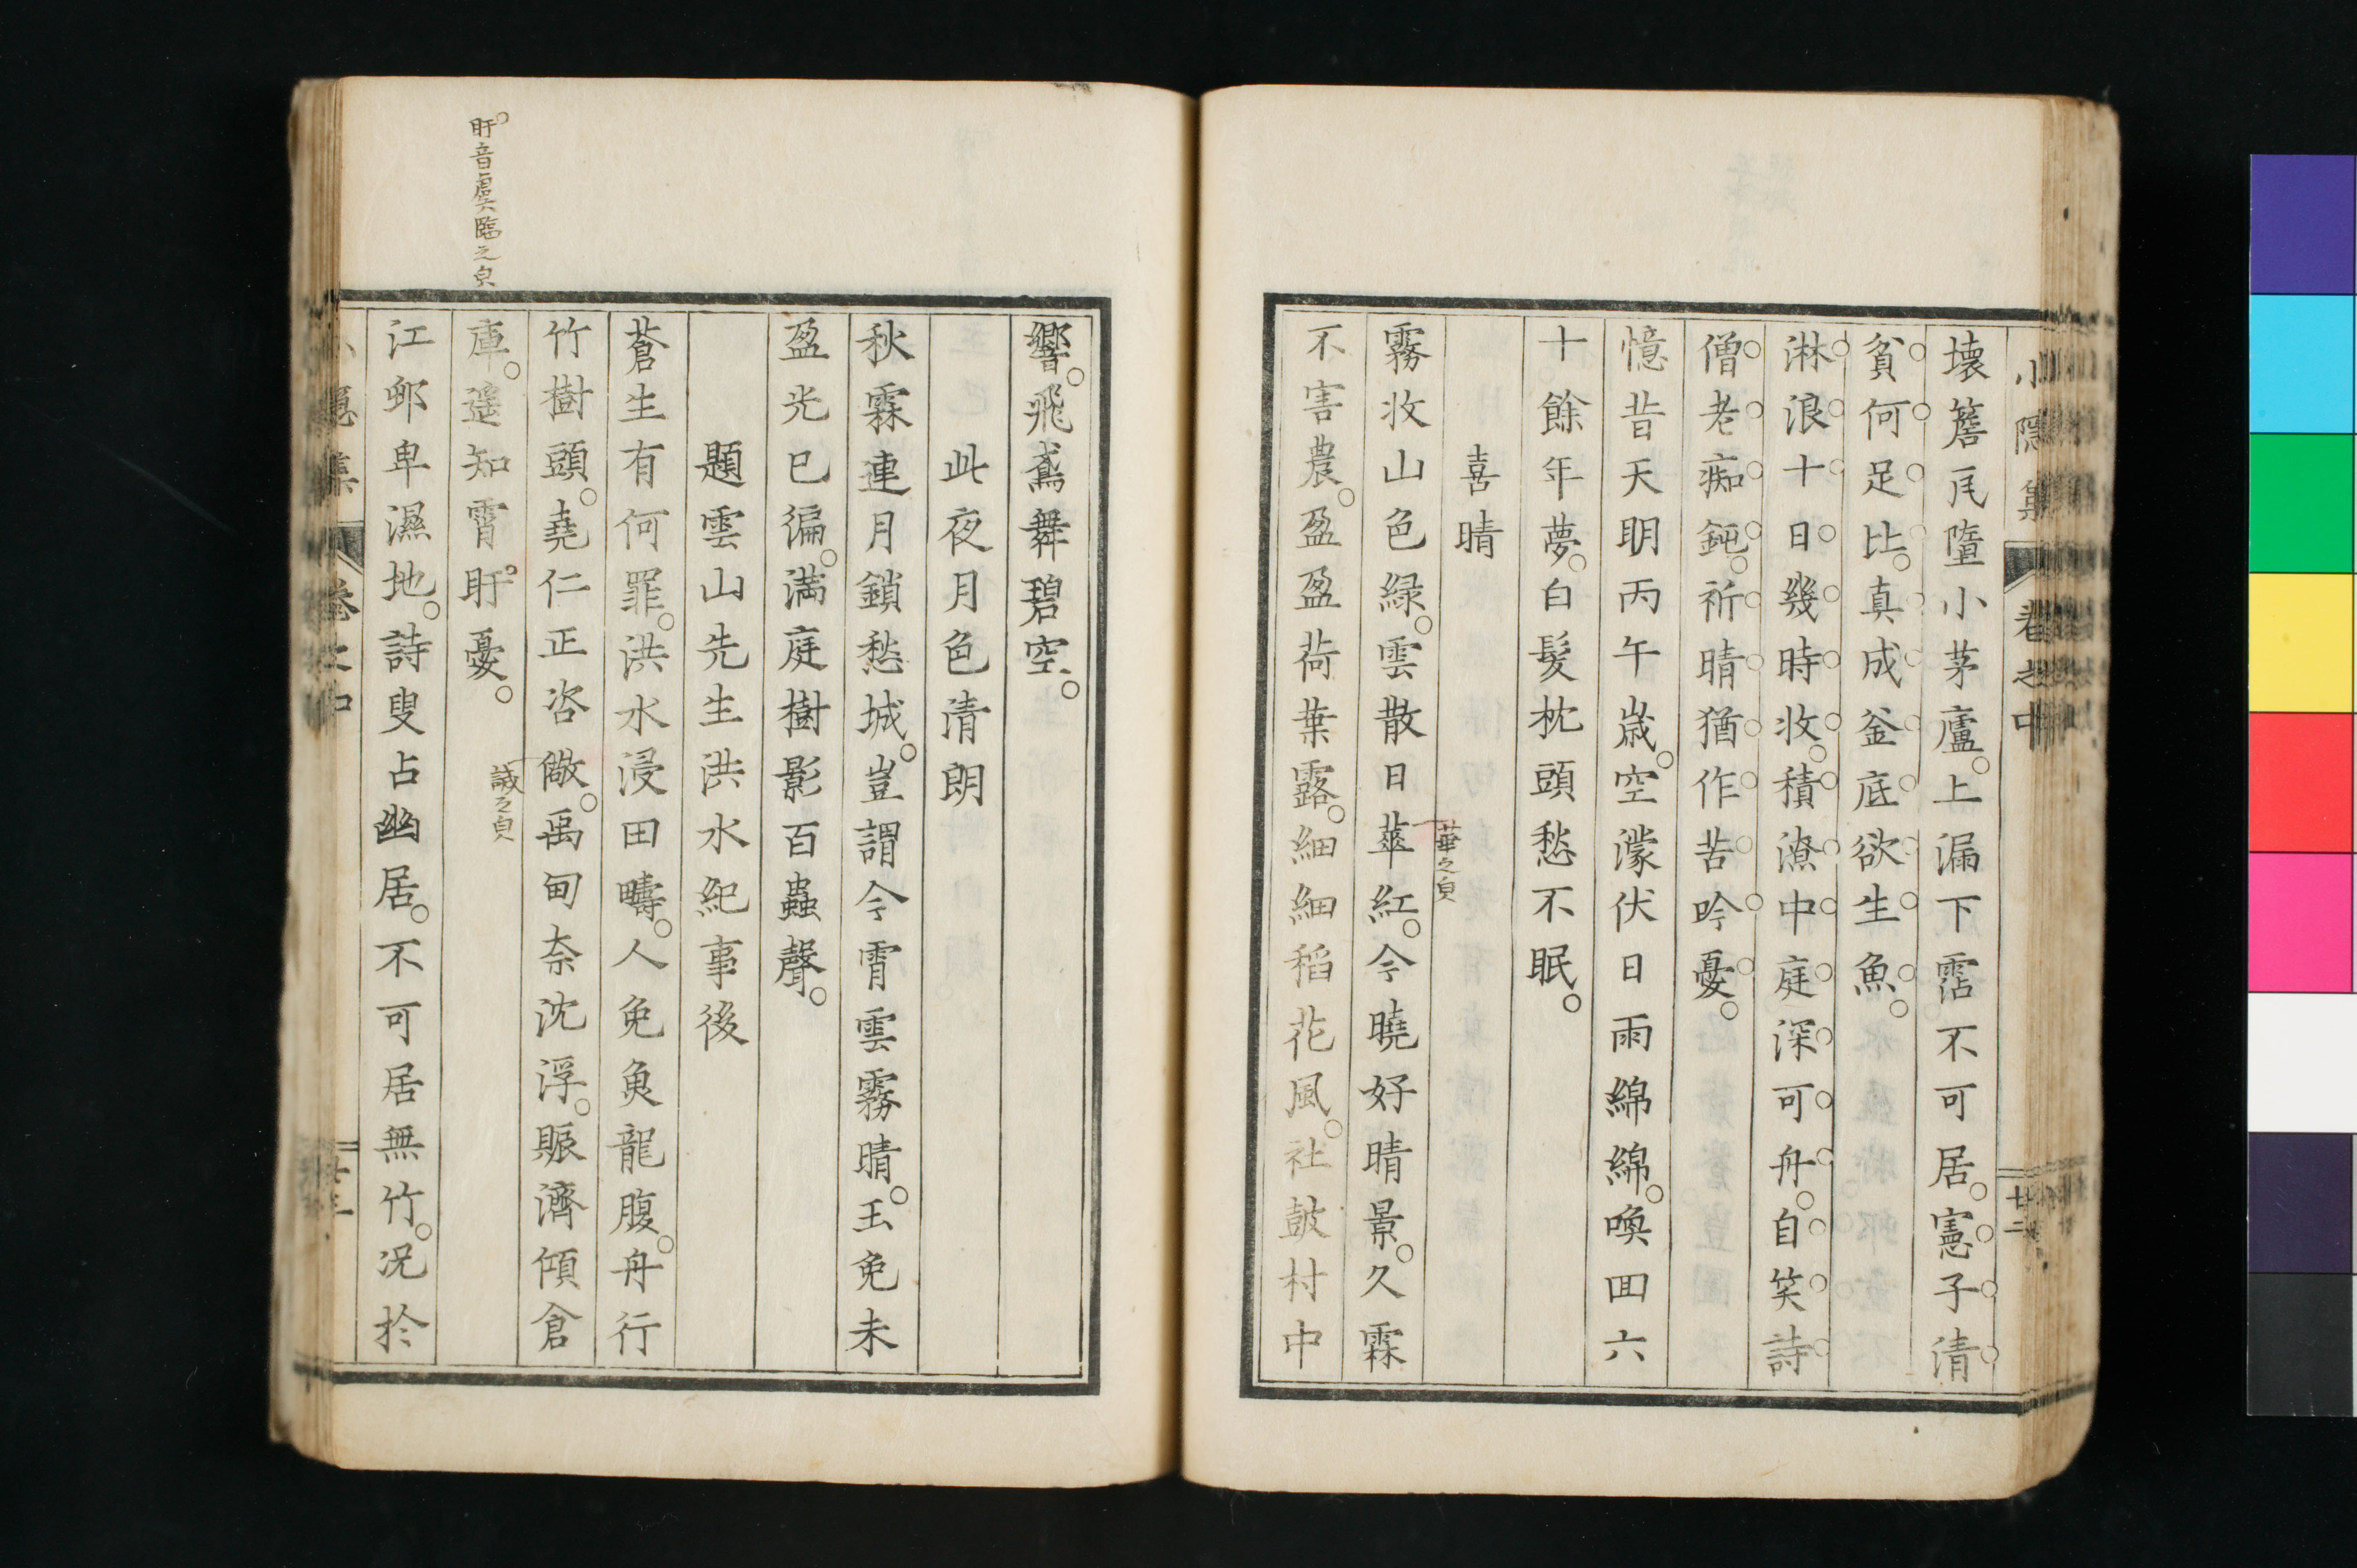 小隱集 卷之中 廿二
壊簷瓦墮小茅廬。上漏下霑不可居。憲子清
貧何足比。真成釜底欲生魚。
淋浪十日幾時收。積潦中庭深可舟。自笑詩
僧老痴鈍。祈晴猶作苦吟憂。
憶昔天明丙午歳。空濛伏日雨綿綿。喚回六
十餘年夢。白髮枕頭愁不眠。
喜晴
霧收山色緑。雲散日華紅。今曉好晴景。久霖
華之皃
不害農。盈盈荷葉露。細細稻花風。社鼓村中
響。飛鳶舞碧空。
此夜月色清朗
秋霖連月鎖愁城。豈謂今霄雲霧晴。玉兔未
盈光已徧。満庭樹影百蟲聲。
題雲山先生洪水紀事後
蒼生有何罪。洪水浸田疇。人免魚龍腹。舟行
竹樹頭。堯仁正咨儆。禹甸奈沈浮。賑濟傾倉
誡之皃
庫。遥知霄盱憂。
盱音虞臨之皃
江邨卑濕地。詩叟占幽居。不可居無竹。况於
小隱集 卷之中 廿三